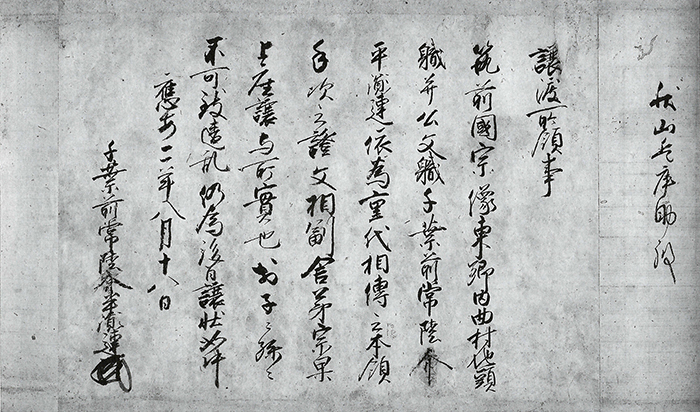 秋山兵庫助殿
譲渡所領事
筑前國宗像東郷内曲村地頭
職并公文職千葉前常陸介
平胤連依為重代相傳之本領
手次之證文相副舎弟宗杲
上座譲与所實也於子々孫々
不可致違乱仍為後日譲状如件
應安二年八月十八日
千葉前常陸介平胤連